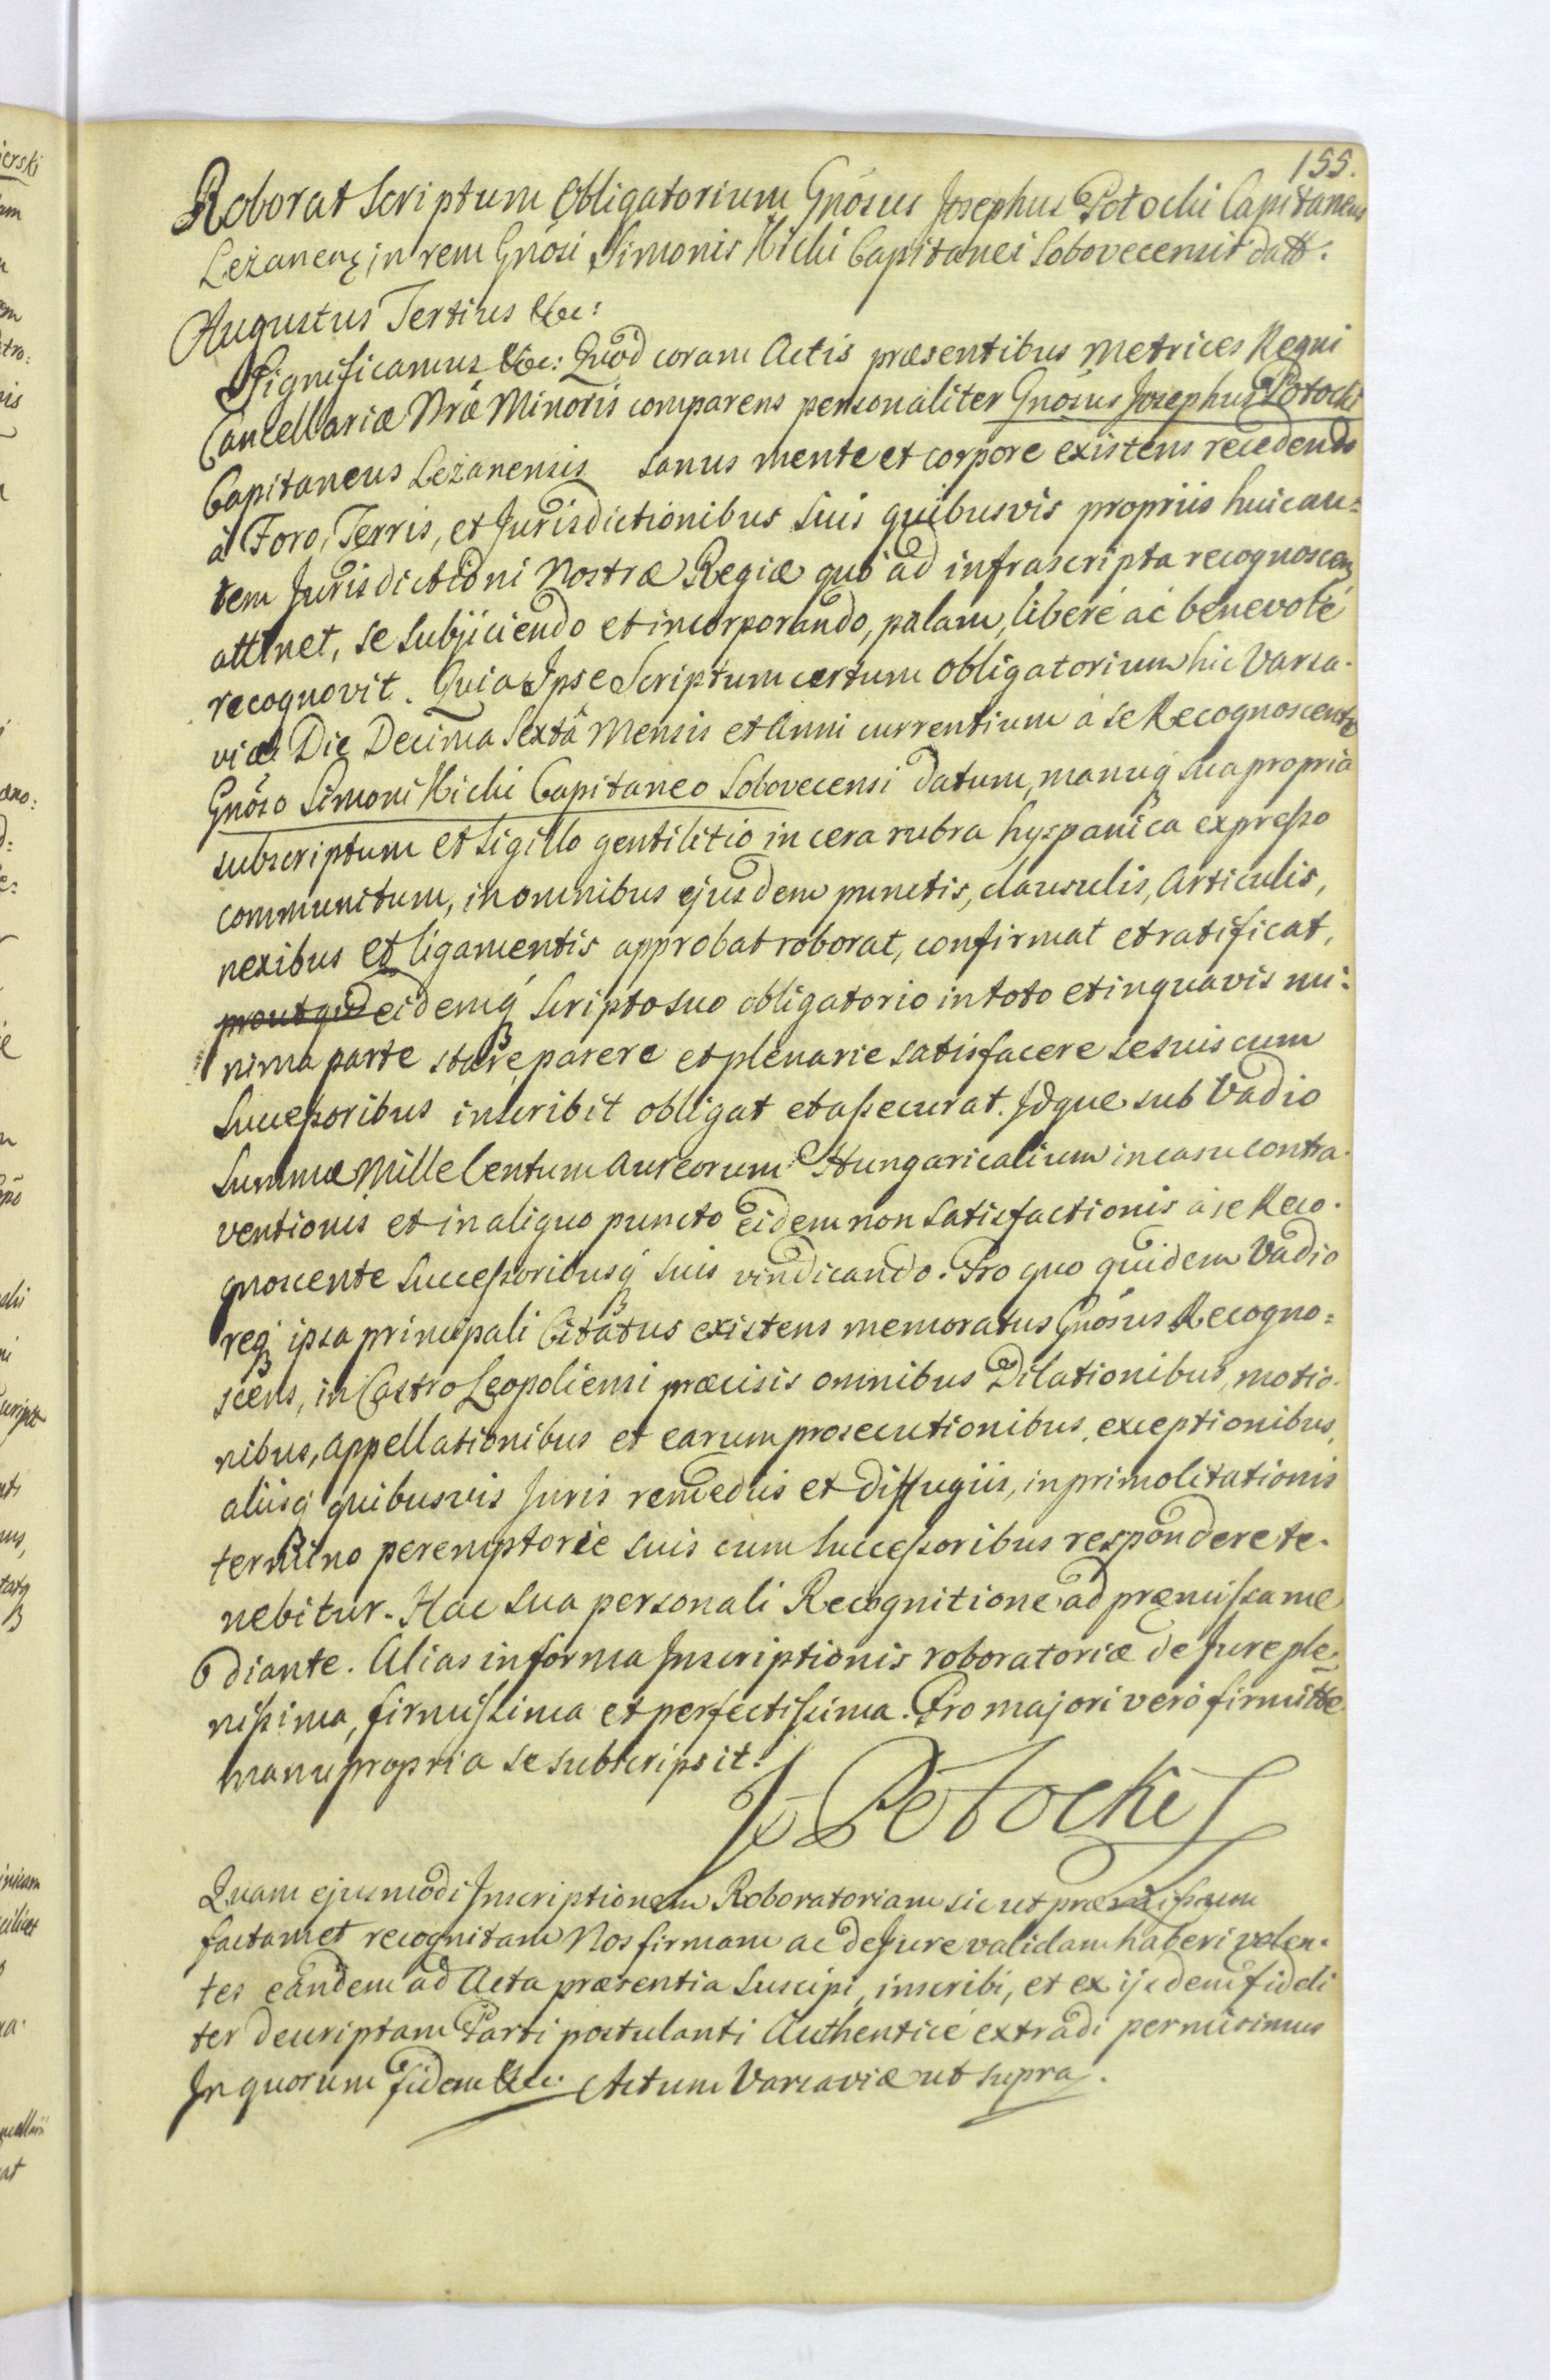 155.
Roborat Scriptum Obligatorium Gnõsus Josephus Potocki Capitaneus
Leżanen̨ in rem Gnõsi Simonis Hicki Capitanei Sobovecensis datt:
Augustus Tertius &c:
Significamus &c: Quod coram Actis præsentibus Metrices Regni
Cancellariæ Nræ Minoris comparens personaliter Gnõsus Josephus Potocki
Capitaneus Leżanensis sanus mente et corpore existens recedendo
à Foro, Terris, et Jurisdictionibus suis quibusvis propriis huic au=
tem Jurisdictioni Nostræ Regiæ quo ad infrascripta recognoscen̨
attinet, se subjiciendo et incorporando, palam, liberé ac benevolé
recognovit. Quia Ipse Scriptum certum obligatorium hic Varsa-
viæ Die Decima Sextâ Mensis et Anni currentium á se Recognoscente
Gnõso Simoni Hicki Capitaneo Sobovecensi datum, manuq́ sua propria
subscriptum et Sigillo gentilitio in cera rubra hyspanica expresso
communitum, in omnibus ejusdem punctis, clausulis, Articulis,
nexibus et ligamentis approbat roborat, confirmat et ratificat,
prout qd eidemq́ Scripto suo obligatorio in toto et in quavis mi-
nima parte stare, parere et plenarie satisfacere se suis cum
Successoribus inscribit obligat et assecurat. Idque sub Vadio
Summæ Mille Centum Aureorum Hungaricalium in casu contra-
ventionis et in aliquo puncto eidem non Satisfactionis á se Reco-
gnoscente Successoribusq́ suis vindicando. Pro quo quidem Vadio
req́ ipsa principali Citatus existens memoratus Gnõsus Recogno=
scens, in Castro Leopoliensi præcisis omnibus Dilationibus, motio-
nibus, appellationibus et earum prosecutionibus, exceptionibus,
aliisq́ quibusvis Juris remediis et diffugiis, in primo Citationis
termino peremptorie suis cum Successoribus respondere te-
nebitur. Hac sua personali Recognitione ad præmissa me
diante. Alias in forma Inscriptionis roboratoriæ de Jure ple-
nissima, firmissima et perfectissima. Pro majori veró firmitte
manu propria se subscripsit.
J Potocki
Quam ejusmodi Inscriptionem Roboratoriam sic ut præmissum
factam et recognitam Nos firmam ac de Jure validam haberi volen-
tes eandem ad Acta præsentia Suscipi, inscribi, et ex ijsdem fideli
ter descriptam Parti postulanti Authenticé extradi permisimus
In quorum fidem &c. Actum Varsaviæ ut supra.